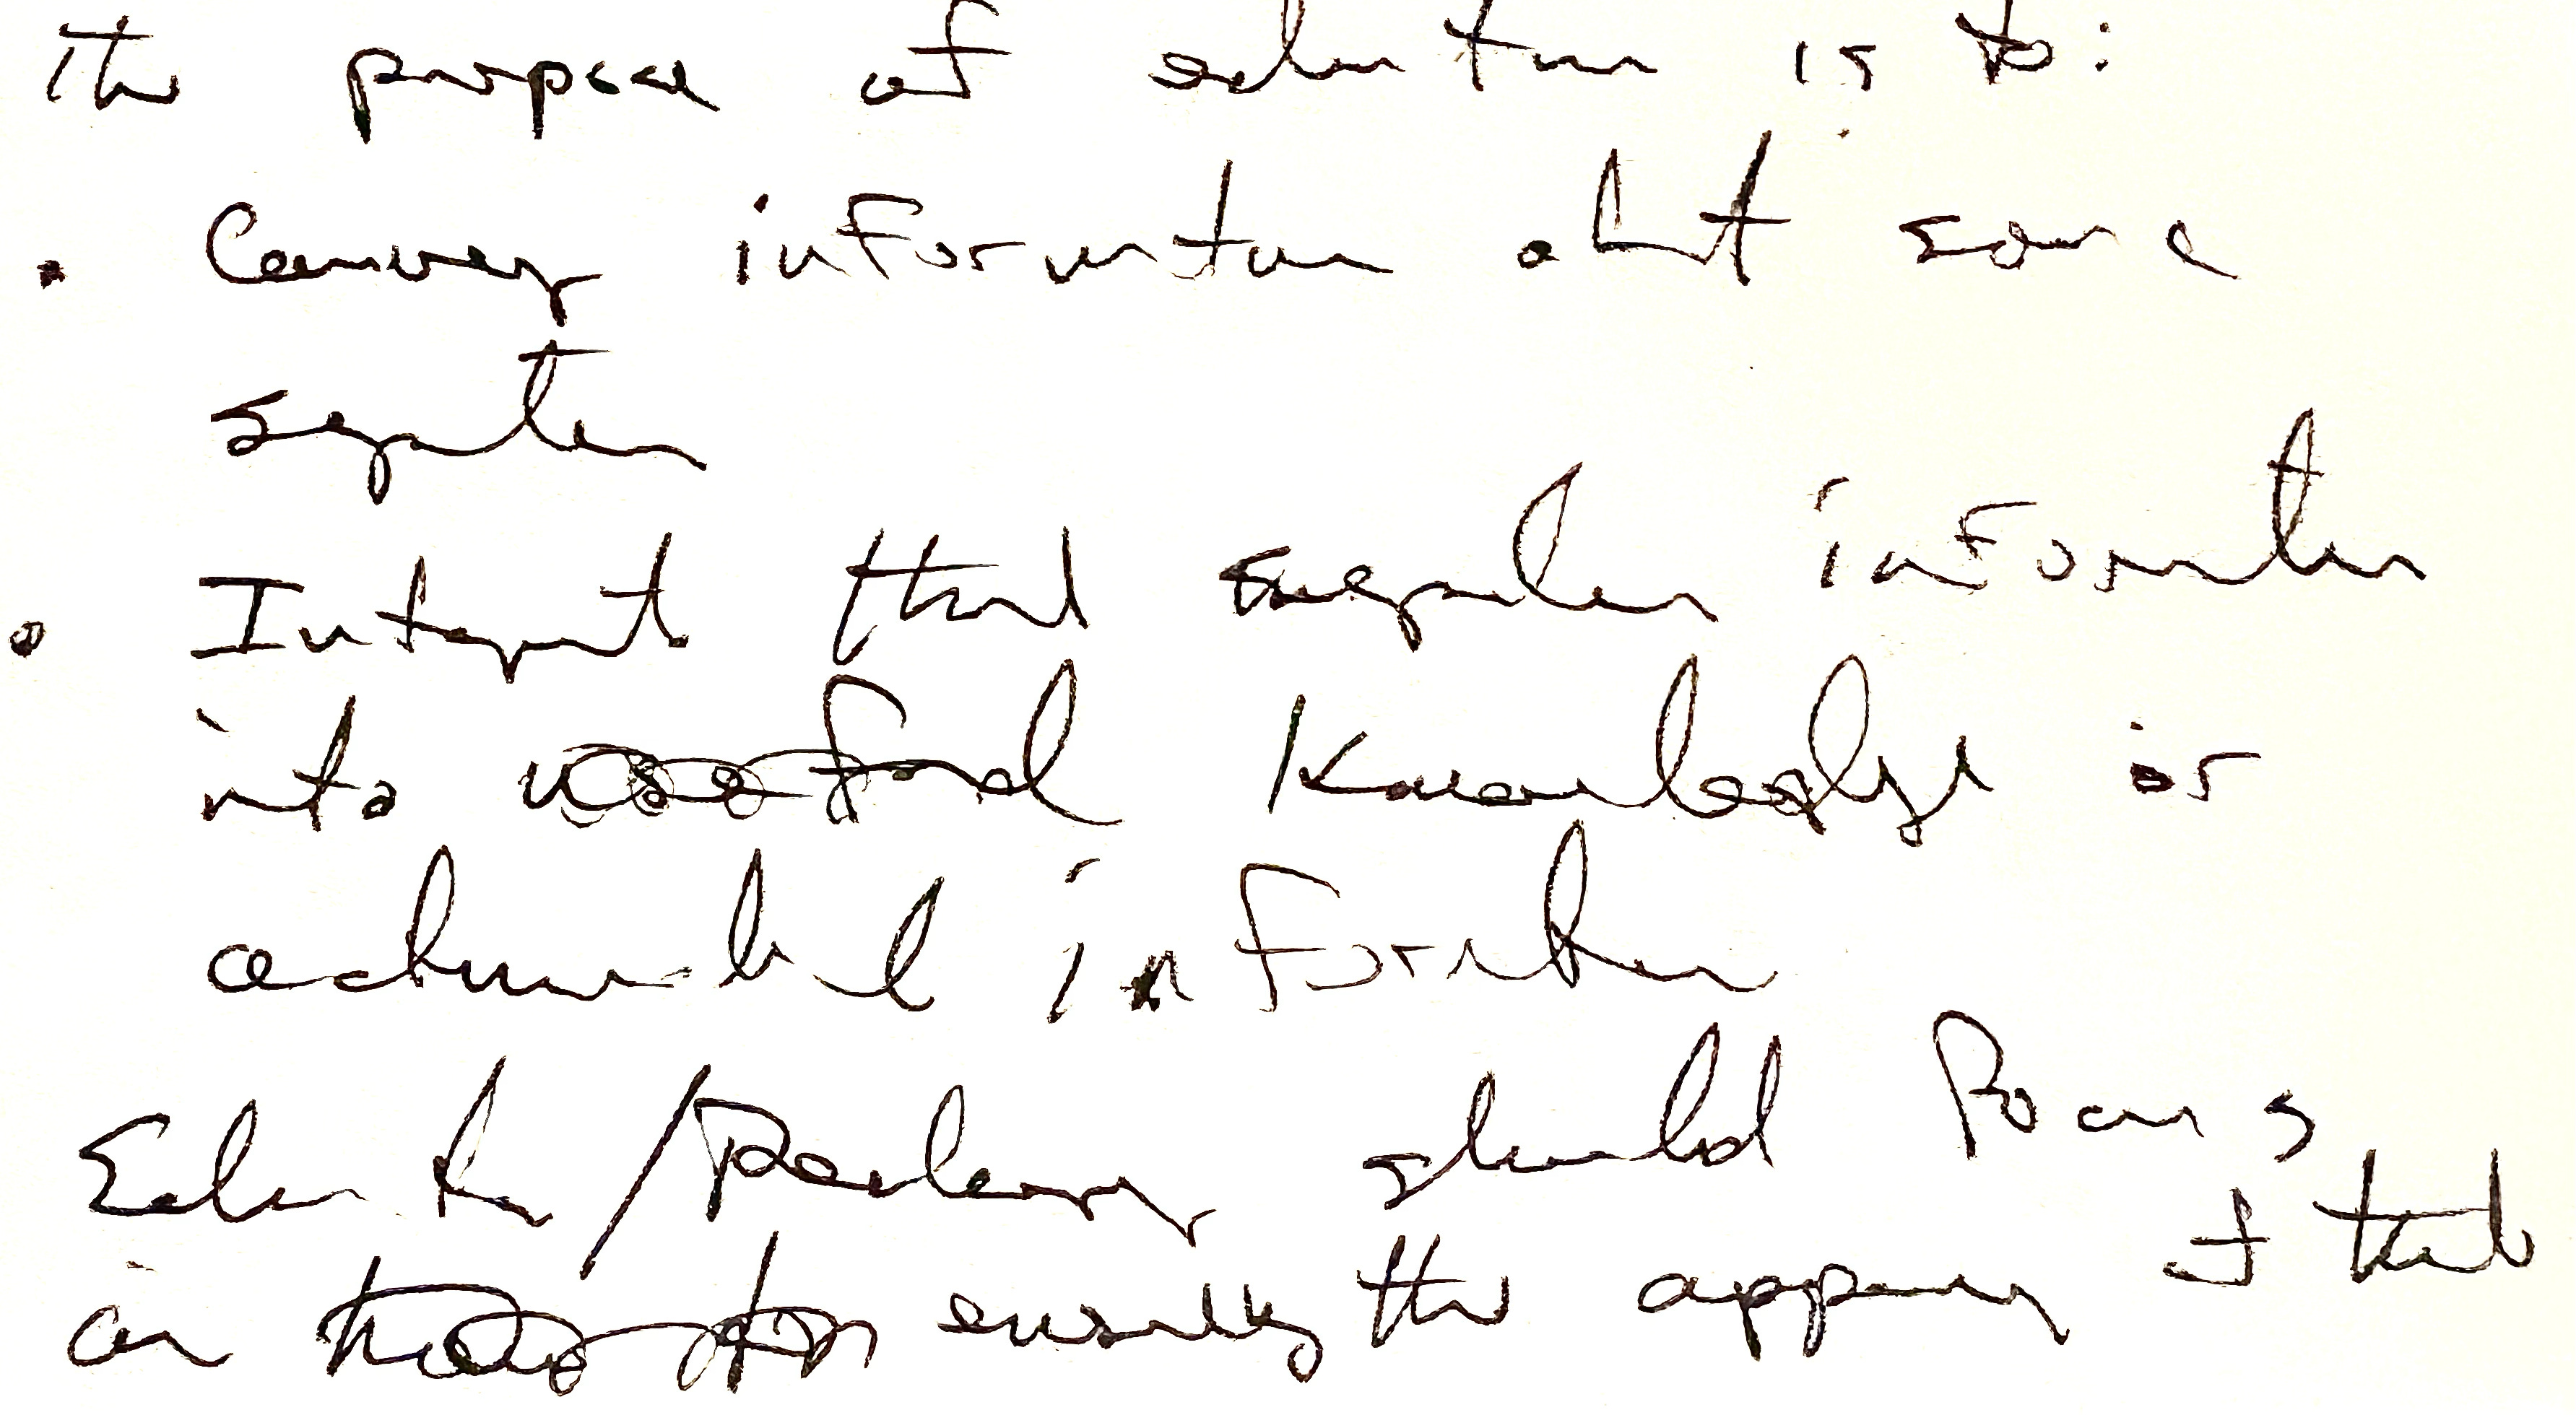 The purpose of education is to:
• Convey information about some
system
• Interpret that system information
into useful knowledge or
actionable information
Education/Pedagogy should focus
on the of that